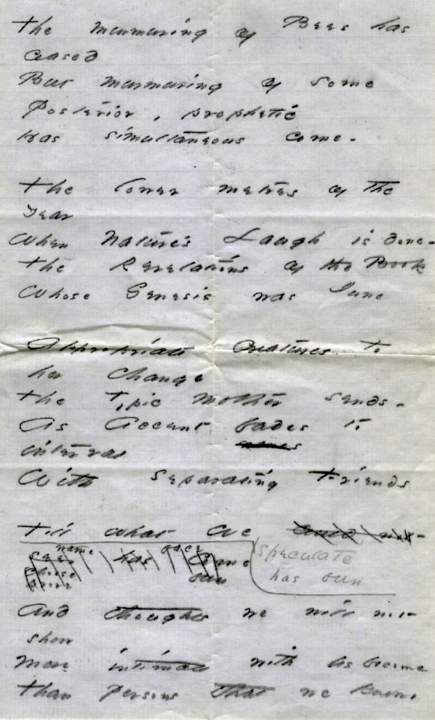 The murmuring of Bees has
ceased
But murmuring of some
Posterior, prophetic
Has simultaneous come -
The lower metres of the
Year
When Nature's Laugh is done -
The Revelations of the Book
Whose Genesis was June
Appropriate Creatures to
her change
The Typic Mother sends -
As Accent fades to
interval
With separating Friends
Till what we
speculate
has been
And thoughts we will not
show
More intimate with us become
Than Persons that we know.